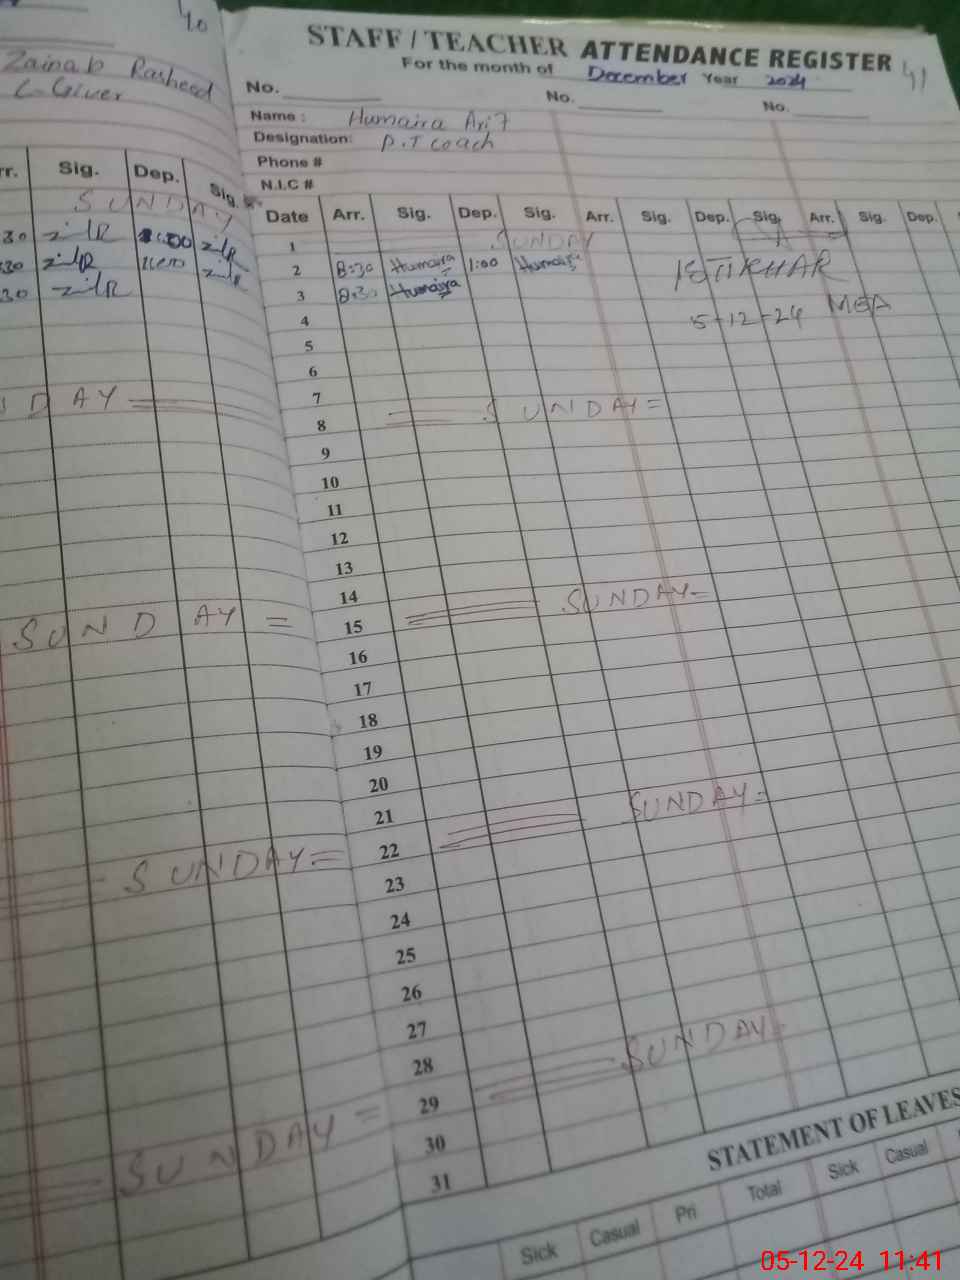 40
Zainab Rasheed
C-Giver
rr. Sig. Dep. Sig.
SUNDAY
30
30 11:00
30
SUNDAY
SUNDAY =
SUNDAY =
SUNDAY =
41
STAFF / TEACHER ATTENDANCE REGISTER
For the month of December Year 2024
No. No. No.
Name : Humaira Arif
Designation: P.T coach
Phone #
N.I.C #
Date Arr. Sig. Dep. Sig. Arr. Sig. Dep. Sig. Arr. Sig. Dep.
1 SUNDAY
2 8:30 Humaira 1:00 Humaira
3 8:30 Humaira
IFTIKHAR
MEA
5-12-24
4
5
6
7
8 SUNDAY =
9
10
11
12
13
14
15 SUNDAY =
16
17
18
19
20
21
22 SUNDAY =
23
24
25
26
27
28
29 SUNDAY =
30
31
STATEMENT OF LEAVES
Sick Casual Pri Total Sick Casual
05-12-24 11:41